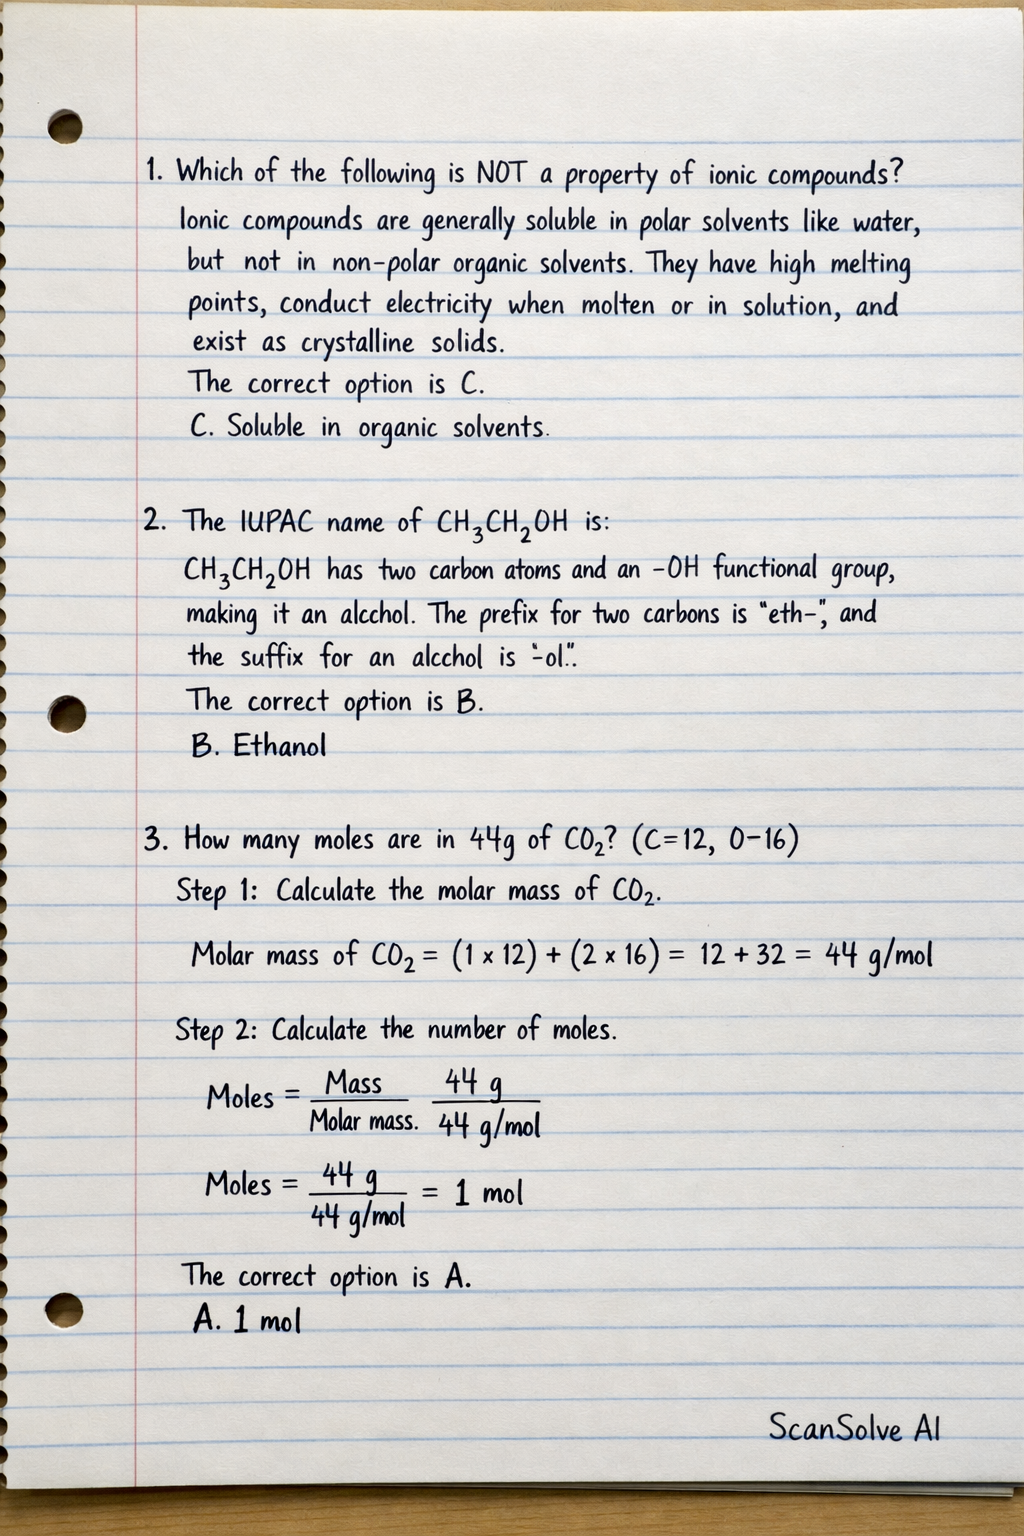 1. Which of the following is NOT a property of ionic compounds?
Ionic compounds are generally soluble in polar solvents like water,
but not in non-polar organic solvents. They have high melting
points, conduct electricity when molten or in solution, and
exist as crystalline solids.
The correct option is C.
C. Soluble in organic solvents.
2. The IUPAC name of CH₃CH₂OH is:
CH₃CH₂OH has two carbon atoms and an -OH functional group,
making it an alcchol. The prefix for two carbons is "eth-", and
the suffix for an alcchol is "-ol".
The correct option is B.
B. Ethanol
3. How many moles are in 44g of CO₂? (C=12, O-16)
Step 1: Calculate the molar mass of CO₂.
Molar mass of CO₂ = (1 × 12) + (2 × 16) = 12 + 32 = 44 g/mol
Step 2: Calculate the number of moles.
Moles = Mass / Molar mass. 44 g / 44 g/mol
Moles = 44 g / 44 g/mol = 1 mol
The correct option is A.
A. 1 mol
ScanSolve AI